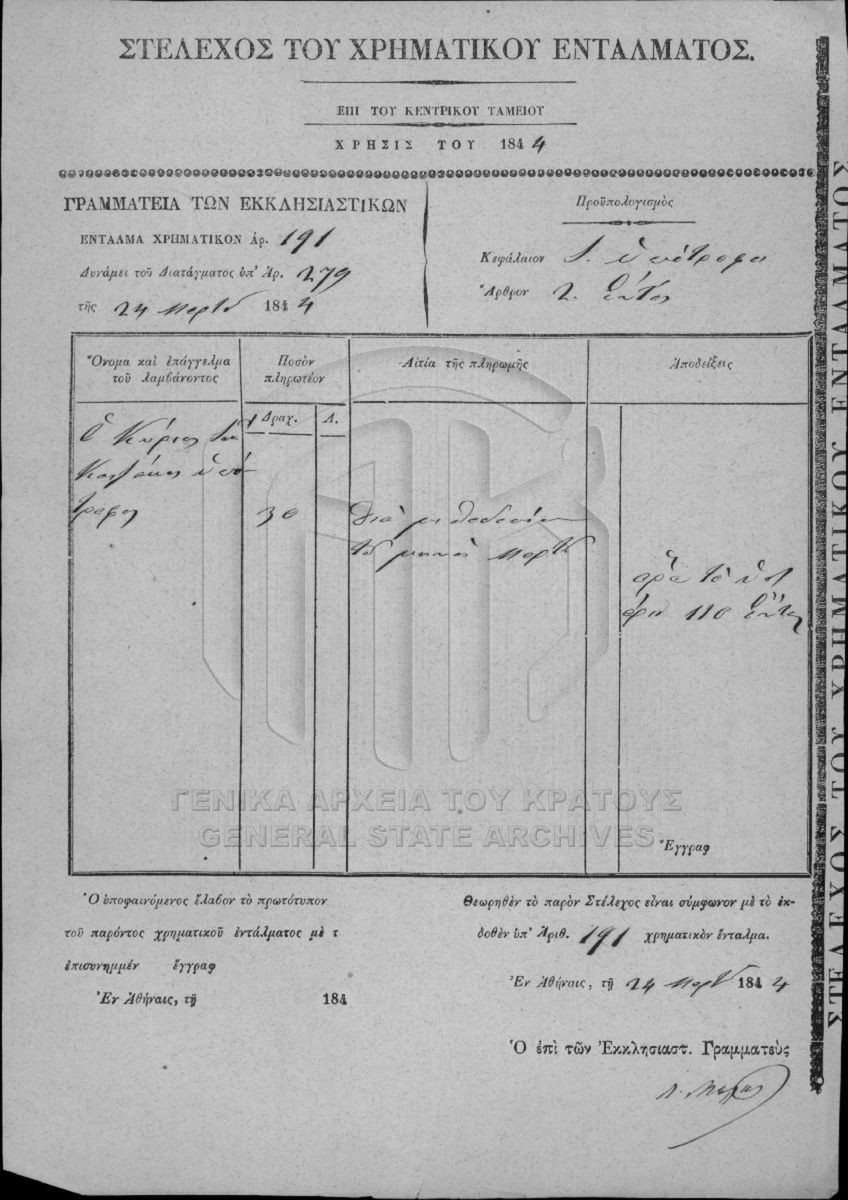 ΣΤΕΛΕΧΟΣ ΤΟΥ ΧΡΗΜΑΤΙΚΟΥ ΕΝΤΑΛΜΑΤΟΣ.
ΕΠΙ ΤΟΥ ΚΕΝΤΡΙΚΟΥ ΤΑΜΕΙΟΥ
ΧΡΗΣΙΣ ΤΟΥ 1844
ΓΡΑΜΜΑΤΕΙΑ ΤΩΝ ΕΚΚΛΗΣΙΑΣΤΙΚΩΝ
ΕΝΤΑΛΜΑ ΧΡΗΜΑΤΙΚΟΝ Ἀρ. 191
Δυνάμει τοῦ Διατάγματος ὑπ' Ἀρ. 279
τῆς 24 Μαρτίου 1844
Προϋπολογισμὸς
Κεφάλαιον 1. ὑπότροφοι
Ἄρθρον 2. ἐντὸς
Ὄνομα καὶ ἐπάγγελμα
τοῦ λαμβάνοντος
Ποσὸν
πληρωτέον
Αἰτία τῆς πληρωμῆς
Ἀποδείξεις
Δραχ.
Λ.
Ὁ Κύριος
ὑπό-
τροφος
30
Διὰ μισθοδοσίαν
τοῦ μηνὸς Μαρτίου
ὅρα τὸ ὑπ'
ἀρ. 110 ἔντ.
Ἔγγραφ
ΓΕΝΙΚΑ ΑΡΧΕΙΑ ΤΟΥ ΚΡΑΤΟΥΣ
GENERAL STATE ARCHIVES
Ὁ ὑποφαινόμενος ἔλαβον τὸ πρωτότυπον
τοῦ παρόντος χρηματικοῦ ἐντάλματος μὲ τ
ἐπισυνημμέν ἔγγραφ
Ἐν Ἀθήναις, τῇ 184
Θεωρηθὲν τὸ παρὸν Στέλεχος εἶναι σύμφωνον μὲ τὸ ἐκ-
δοθὲν ὑπ' Ἀριθ. 191 χρηματικὸν ἔνταλμα.
Ἐν Ἀθήναις, τῇ 24 Μαρτίου 1844
Ὁ ἐπὶ τῶν Ἐκκλησιαστ. Γραμματεὺς
ΣΤΕΛΕΧΟΣ ΤΟΥ ΧΡΗΜΑΤΙΚΟΥ ΕΝΤΑΛΜΑΤΟΣ